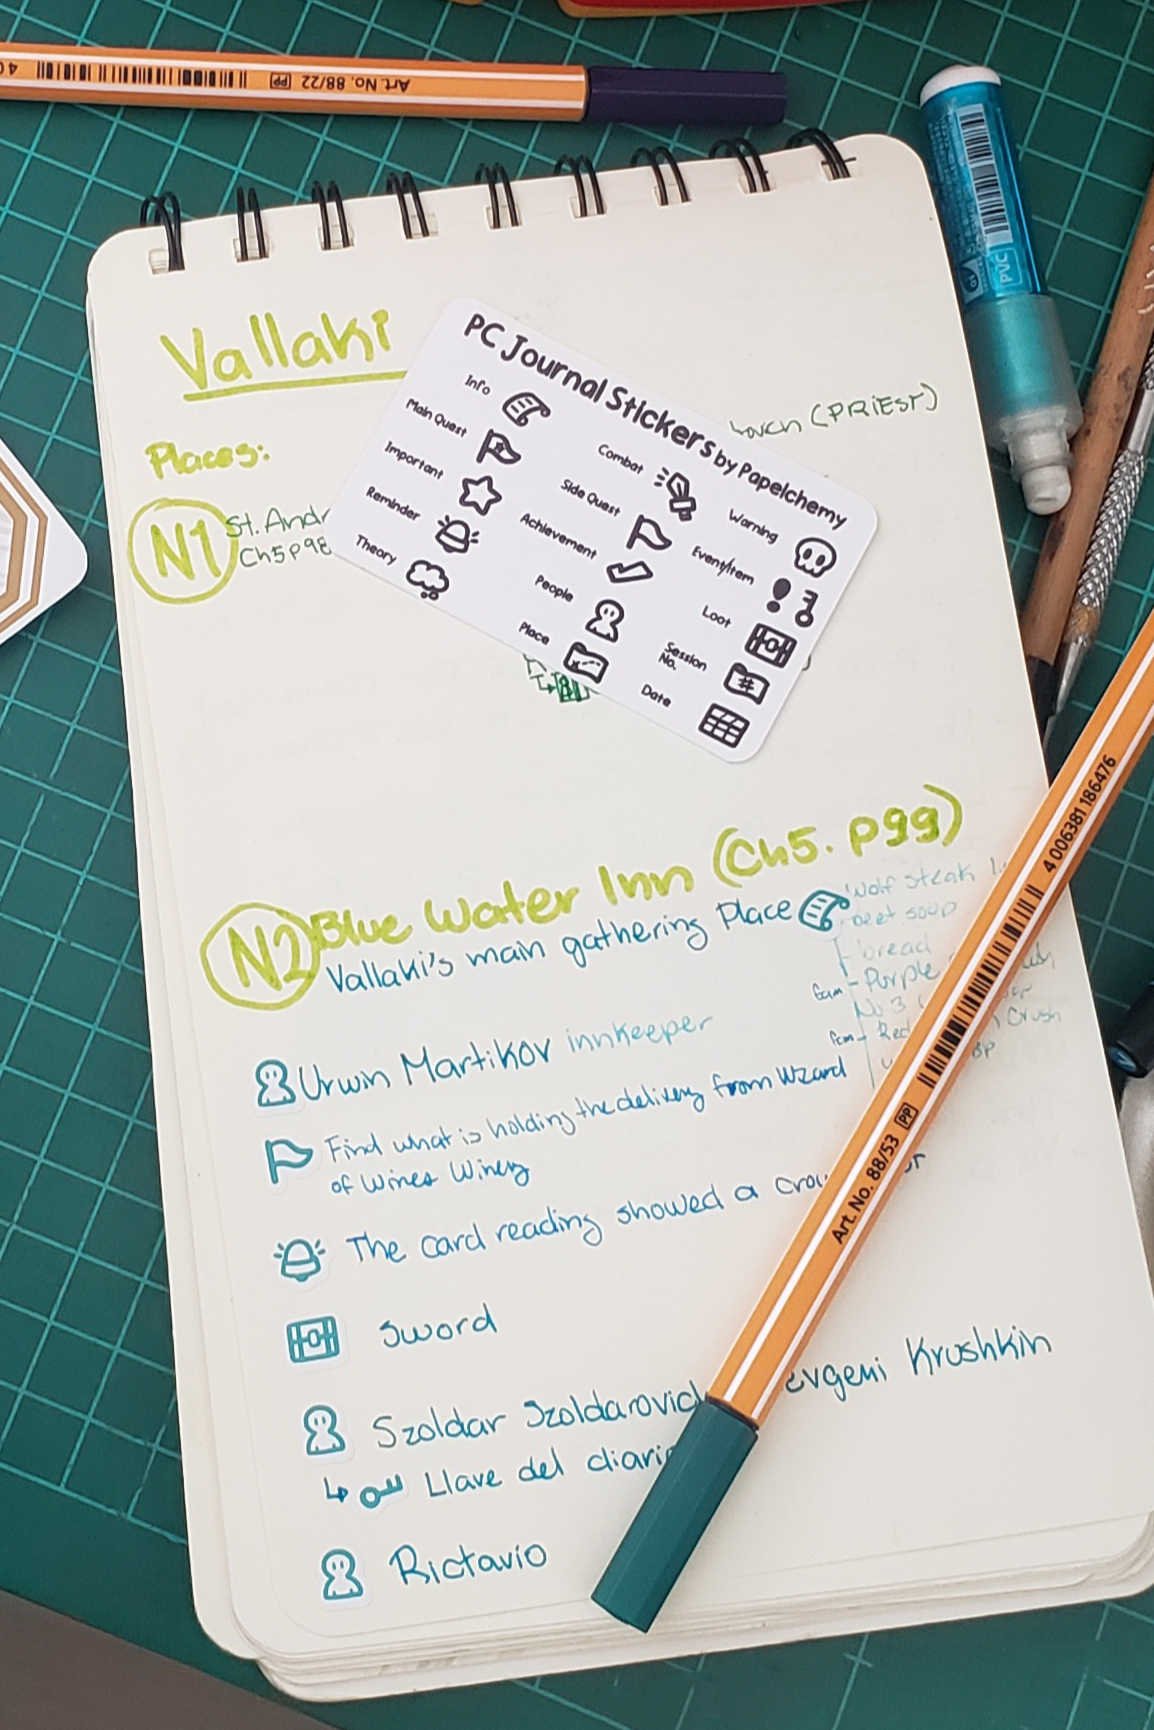 Art. No. 88/22 PP
PVC
Vallaki
(PRiEST)
Places:
N1 St. Andr
Ch5p98
PC Journal Stickers by Papelchemy
Info
Main Quest
Important
Reminder
Theory
Combat
Side Quest
Achievement
People
Place
Warning
Event/Item
Loot
Session No.
#
Date
N2 Blue Water Inn (Ch5. p99)
Vallaki's main gathering Place
Wolf steak
beet soup
bread
Purple
No 3
Red
Crush
Urwin Martikov innkeeper
Find what is holding the delivery from Wzard
of Wines Winery
The card reading showed a
Sword
Szoldar Szoldarovich evgeni Krushkin
Llave del diario
Rictavio
Art. No. 88/53 PP 4 006381 186476